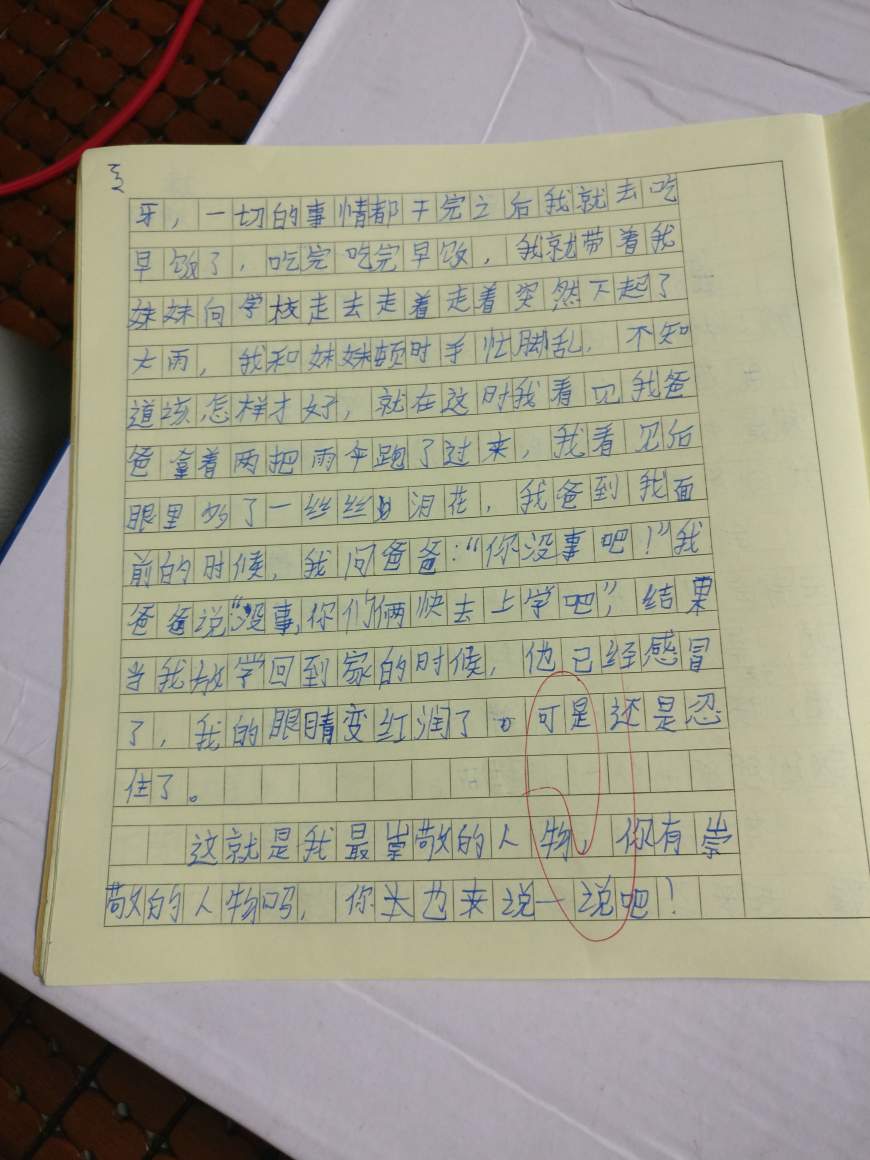 牙，一切的事情都干完之后我就去吃
早饭了，吃完吃完早饭，我就带着我
妹妹向学校走去走着走着突然下起了
大雨，我和妹妹顿时手忙脚乱，不知
道该怎样才好，就在这时我看见我爸
爸拿着两把雨伞跑了过来，我看见后
眼里多了一丝丝泪花，我爸到我面
前的时候，我问爸爸：“你没事吧！”我
爸爸说“没事，你们俩快去上学吧”，结果
当我放学回到家的时候，他已经感冒
了，我的眼睛变红润了。可是还是忍
住了。
这就是我最崇敬的人物，你有崇
敬的人物吗，你也来说一说吧！